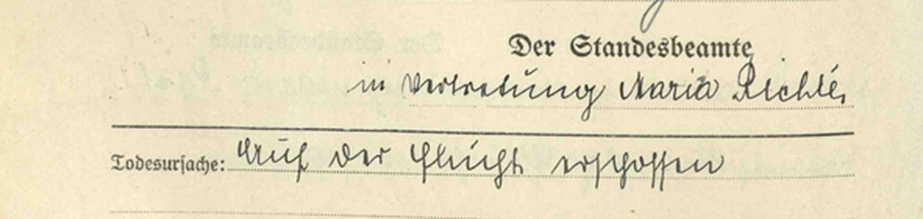 Der Standesbeamte
in Vertretung Maria Richter
Todesursache: Auf der Flucht erschossen